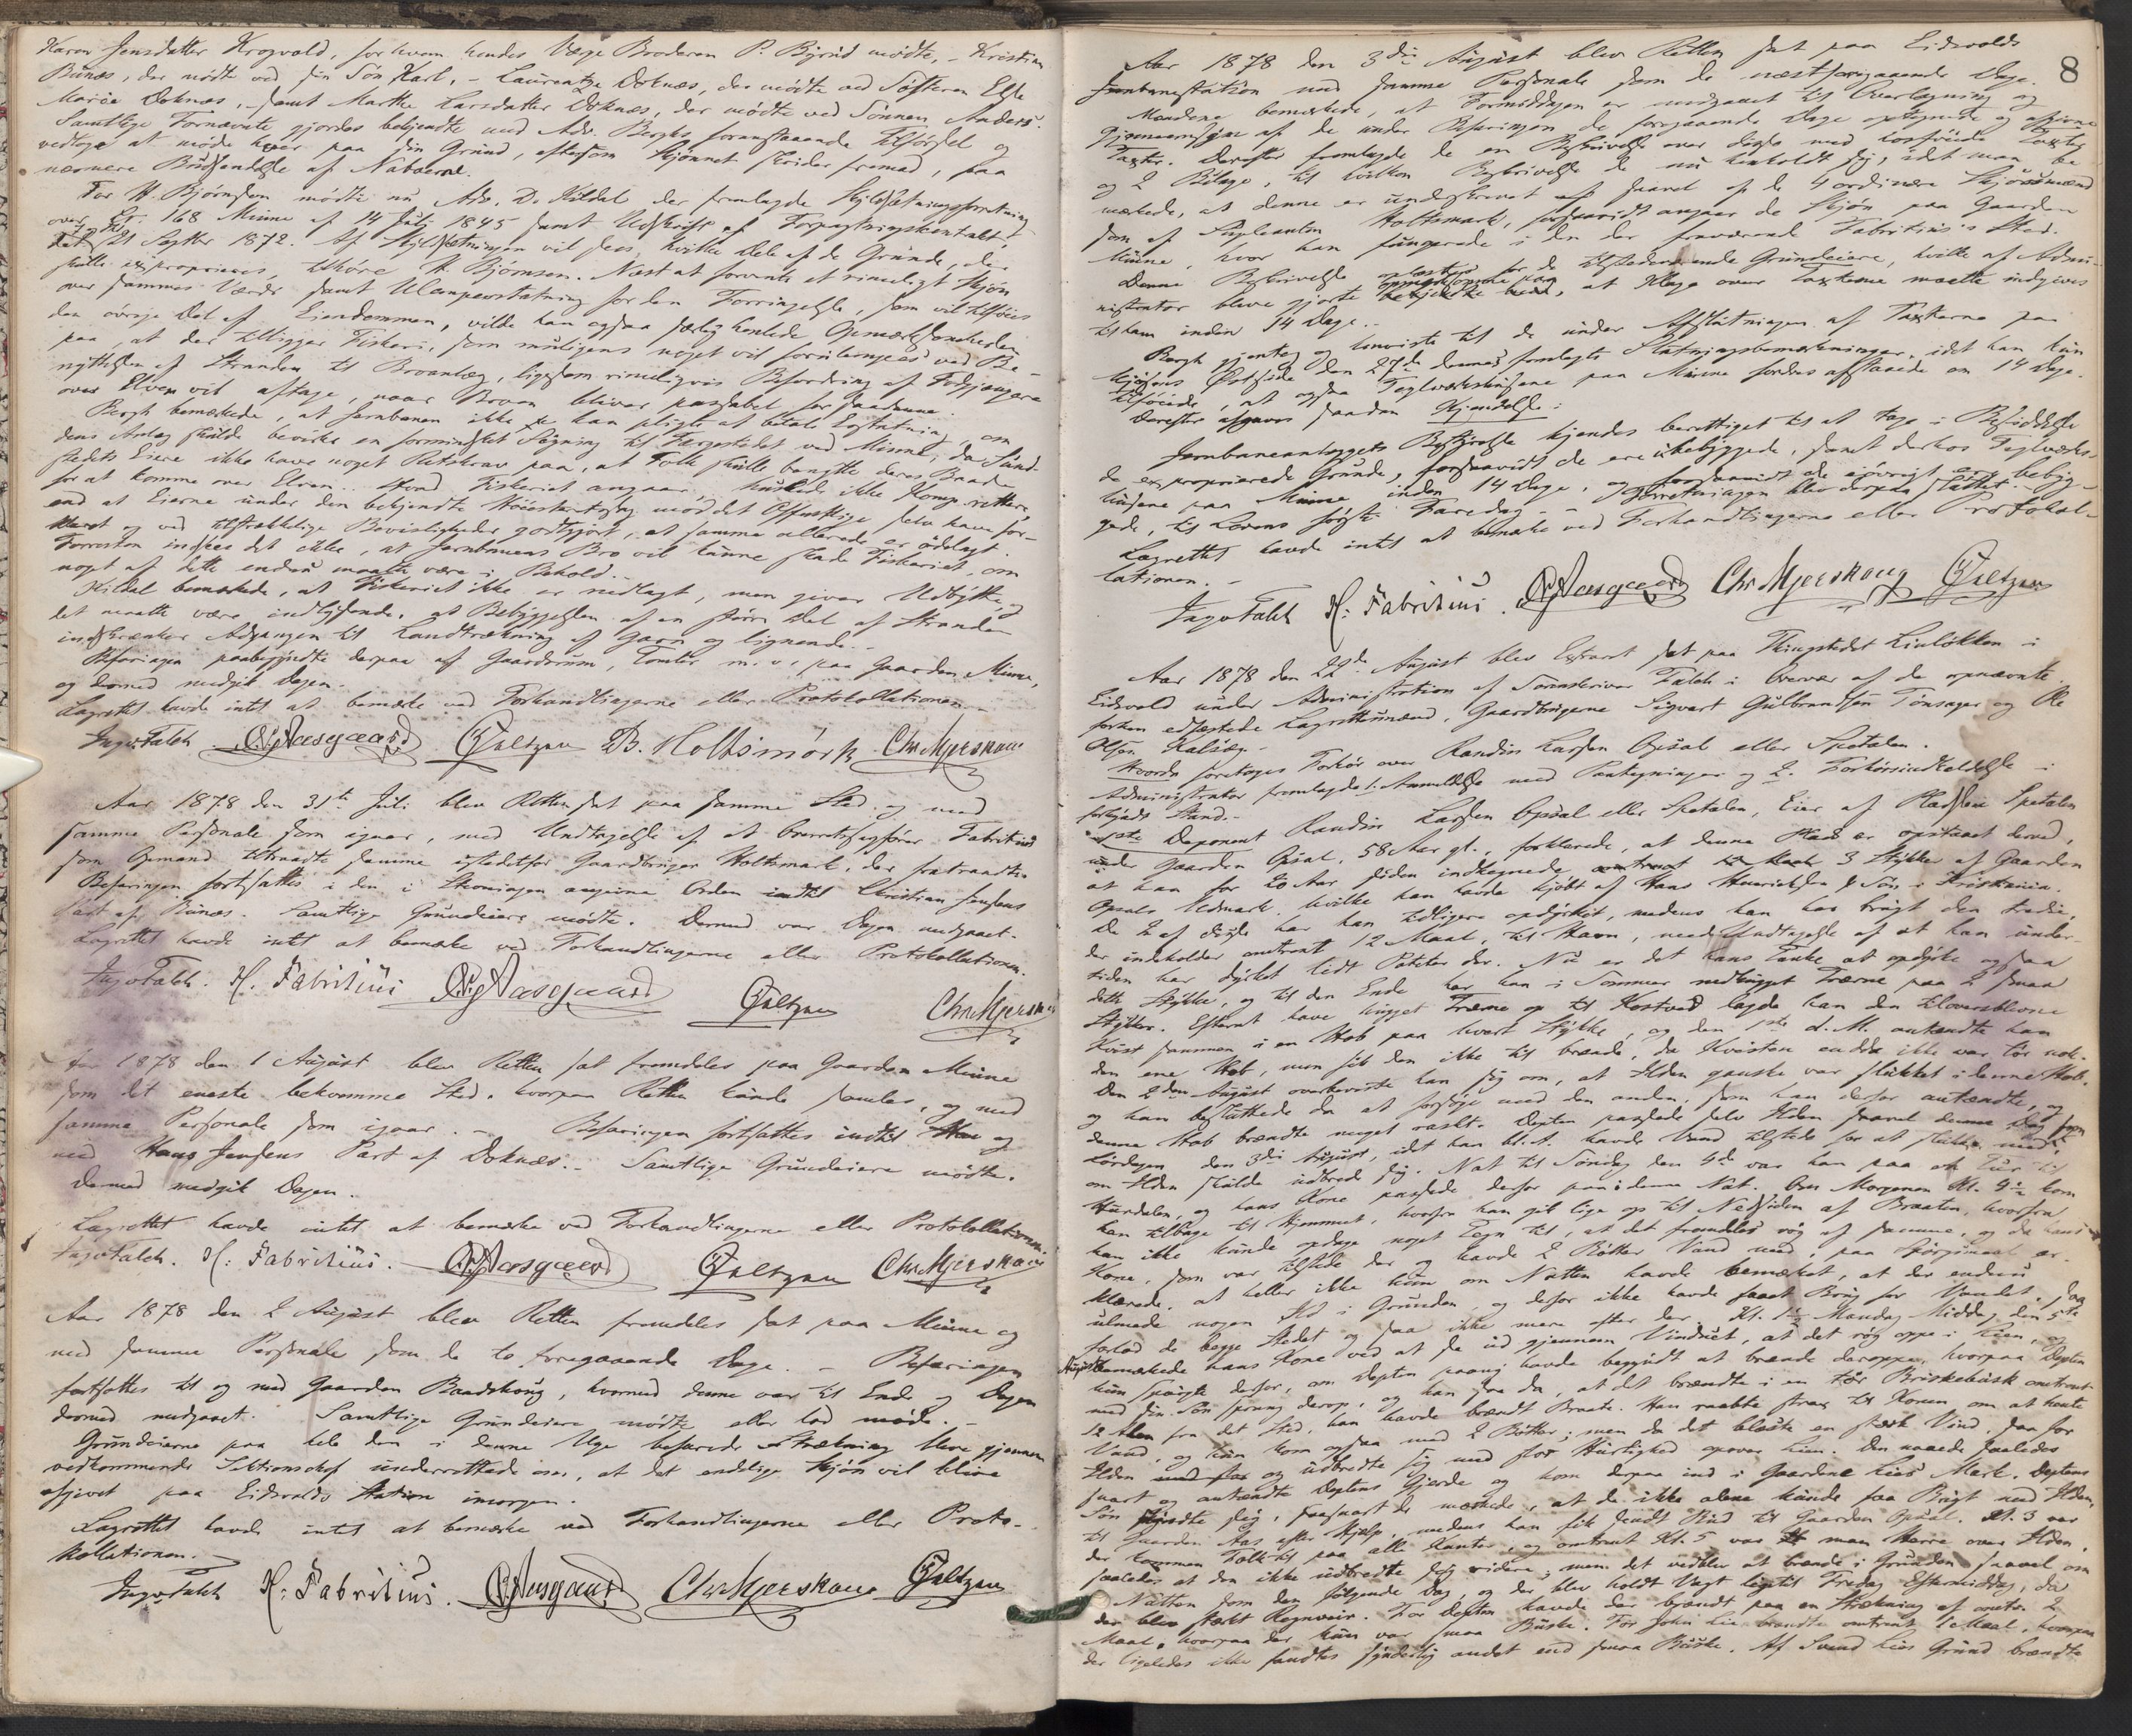 Karen Jensdatter Krogvold, for hvem hendes Værge Broderen P. Byrud mødte, - Kristian
Bunæs, der mødte ved sin Søn Karl, - Laurentze Doknæs, der mødte ved Søsteren Else
Marie Doknæs, samt Marthe Larsdatter Doknæs, der mødte ved Sønnen Anders.
Samtlige Fornævnte gjordes bekjendte med Adv. Berghs foranstaaende Tilførsel og
vedtoge at møde hver paa sin Grund, eftersom Skjønnet skrider fremad, paa
nærmere Budsendelse af Naboerne.
For H. Bjørnsen mødte nu Adv. D. Kildal der fremlagde Skjldsætningsforretning
over Lr. 168 Minne af 14 Juli 1845 samt Udskrift af Forpagtningskontrakt,
dat. 21 Septbr 1872. Af Skjldsætningen vil sees, hvilke Dele af de Grunde, der
skulle exproprieres, tilhøre H. Bjørnsen. Næst at forvente et rimeligt Skjøn
over sammes Værdi samt Ulempeerstatning for den Forringelse, som vil tilføies
den øvrige Del af Eiendommen, vilde han ogsaa særlig henlede Opmærksomheden
paa, at der tilligger Fiskeri, som muligens noget vil forulempes ved Be-
nyttelsen af Stranden til Broanlæg, ligesom rimeligvis Befordring af Fodgjængere
over Elven vil aftage, naar Broen bliver passabel for saadanne.
Bergh bemærkede, at Jernbanen ikke kan pligte at betale Erstatning, om
dens Anlæg skulde bevirke en formindsket Søgning til Færgestedet ved Minne, da Sund-
stedets Eiere ikke have noget Retskrav paa, at Folk skulle benytte deres Baad
for at komme over Elven. Hvad Fiskeriet angaar, huskede ikke Komp. rettere,
end at Eierne under den bekjendte Høiesteretssag mod det Offentlige selv have for-
klaret og ved tilstrækkelige Bevisligheder godtgjort, at samme allerede er ødelagt.
Forresten indsees det ikke, at Jernbanens Bro vil kunne skade Fiskeriet, om
noget af dette endnu maatte være i Behold.
Kildal bemærkede, at Fiskeriet ikke er nedlagt, men giver Udbytte, og
det maatte være indlysende, at Bebyggelsen af en større Del af Stranden
indskrænker Adgangen til Landtrækning af Garn og lignende.
Befaringen paabegyndtes derpaa af Gaardsrum, Tomter m. v. paa Gaarden Minne,
og dermed medgik Dagen.
Lagrettet havde intet at bemærke ved Forhandlingerne eller Protokollationen.
Ingv. Falch B. Holtsmark Chr. Mjerskaug
Aar 1878 den 31te Juli blev Retten sat paa samme Sted og med
samme Personale som igaar, med Undtagelse af at Overretssagfører Fabritius
som Opmand tiltraadte samme istedetfor Gaardbruger Holtsmark, der fratraadte.
Befaringen fortsattes i den i Stevningen angivne Orden indtil Christian Jensens
Part af Bunæs. Samtlige Grundeiere mødte. Dermed var Dagen medgaaet.
Lagrettet havde intet at bemærke ved Forhandlingerne eller Protokollationen.
Ingv. Falch. H. Fabritius Chr. Mjerskaug
Aar 1878 den 1 August blev Retten sat fremdeles paa Gaarden Minne
som det eneste bekvemme Sted, hvorpaa Retten kunde samles, og med
samme Personale som igaar. - Befaringen fortsattes indtil og
med Hans Jensens Part af Doknæs. - Samtlige Grundeiere mødte.
Dermed medgik Dagen.
Lagrettet havde intet at bemærke ved Forhandlingerne eller Protokollationen.
Ingv. Falch. H. Fabritius. Chr. Mjerskaug
Aar 1878 den 2 August blev Retten fremdeles sat paa Minne og
med samme Personale som de to foregaaende Dage. - Befaringen
fortsattes til og med Gaarden Baadshaug, hvormed denne var til Ende og Dagen
dermed medgaaet. Samtlige Grundeiere mødte eller lod møde. -
Grundeierne paa hele den i denne Uge befarede Strækning bleve gjennem
vedkommende Sektionschef underrettede om, at det endelige Skjøn vil blive
afgivet paa Eidsvolds Station imorgen.
Lagrettet havde intet at bemærke ved Forhandlingerne eller Proto-
kollationen.
Ingv. Falch H. Fabritius. Chr. Mjerskaug
8
Aar 1878 den 3die August blev Retten sat paa Eidsvolds
Jernbanestation med samme Personale som de næstforegaaende Dage.
Mændene bemærkede, at Formiddagen er medgaaet til Overlægning og
Gjennemsyn af de under Befaringen de foregaaende Dage optegnede og afgivne
Taxter. Derefter fremlagde de en Beskrivelse over disse med tilføiede Taxter
og 2 Bilage, til hvilken Beskrivelse de nu henholdt sig, idet man be-
mærkede, at denne er underskrevet af saavel af de 4 ordinære Skjønsmænd
som af Supleanten Holtsmark, forsaavidt angaar de Skjøn paa Gaarden
Minne, hvor han fungerede i den da fraværende Fabritius's Sted.
Denne Beskrivelse oplæstes for de tilstedeværende Grundeiere, hvilke af Admi-
nistrator bleve gjorte opmærksomme paa, at Klage over Taxterne maatte indgives
til ham inden 14 Dage. -
Bergh gjentog og henviste til de under Afslutningen af Taxterne paa
Mjøsens Østside den 27de dennes fremlagte Slutningsbemærkninger, idet han kun
tilføiede, at ogsaa Teglværkshusene paa Minne fordres afstaaede om 14 Dage.
Derefter afgaves saadan Kjendelse:
Jernbaneanlæggets Bestyrelse kjendes berettiget til at tage i Besiddelse
de exproprierede Grunde, forsaavidt de ere ubebyggede, samt derhos Teglværks-
husene paa Minne inden 14 Dage, og forsaavidt de iøvrigt ere bebyg-
gede, til Lovens første Faredag. - Forretningen blev derpaa sluttet.
Lagrettet havde intet at bemærke ved Forhandlingerne eller Protokol-
lationen. -
Ingv. Falch H. Fabritius. Chr. Mjerskaug
Aar 1878 den 22de August blev Extraret sat paa Thingstedet Linløkken i
Eidsvold under Administration af Sorenskriver Falch i Overvær af de opnævnte
forhen edfæstede Lagrettesmænd, Gaardbrugerne Sigvart Gulbrandsen Tønsager og Ole
Olsen
Hvorda foretoges Forhør over Randin Larsen Opsal eller Spetalen.
Administrator fremlagde 1. Anmeldelse med Paategninger og 2. Forhørsindkaldelse i
forkyndt Stand. -
1ste Deponent Randin Larsen Opsal eller Spetalen, Eier af Pladsen Spetalen
under Gaarden Opsal, 58 Aar gl., forklarede, at denne Plads er opstaaet derved,
at han for 20 Aar siden indhegnede 3 Stykker af Gaarden
Opsals Udmark, hvilke han havde kjøbt af Hans Henrichsen & Søn i Kristiania.
De 2 af disse har han tidligere opdyrket, medens han har brugt den tredie,
der indeholder omtrent 12 Maal, til Havn, med Undtagelse af at han under-
tiden har dyrket lidt Poteter der. Nu er det hans Tanke at opdyrke ogsaa
dette Stykke, og til den Ende har han i Sommer nedhugget Trærne paa 2 smaa
Stykker. Efterat have hugget Trærne op til Kastved lagde han den tiloversblevne
Kvist sammen i en Hob paa hvert Stykke, og den 1ste d. M. antændte han
den ene Hob, men fik den ikke til brænde, da Kvisten endda ikke var tør nok.
Den 2den August overbeviste han sig om, at Ilden ganske var slukket i denne Hob,
og han besluttede da at forsøge med den anden, som han derfor antændte, og
denne Hob brændte meget raskt. Depten passede selv Ilden saavel denne Dag som
Lørdagen den 3die August, idet han bl. A. havde Vand tilstede for at slukke med,
om Ilden skulde udbrede sig. Nat til Søndag den 4de var han paa en Tur til
Hurdalen, og hans Kone passede derfor paa denne Nat. Om Morgenen Kl. 4½ kom
han tilbage til Hjemmet, hvorfra han gik lige op til Nedsiden af Braaten, hvorfra
han ikke kunde opdage noget Tegn til, at det fremdeles røg af samme, og da hans
Kone, som var tilstede der og havde 2 Bøtter Vand med, paa Spørgsmaal er-
klærede, at heller ikke hun om Natten havde bemærket, at der endnu
ulmede nogen Ild i Grunden, og derfor ikke havde faaet Brug for Vandet, saa
forlod de begge Stedet og saa ikke mere efter der. Kl. 1½ Mandag Middag den 5te
August bemærkede hans Kone ved at se ud gjennem Vinduet, at det røg oppe i Lien, og
hun spurgte derfor, om Depten paany havde begyndt at brænde deroppe, hvorpaa Depten
med sin Søn sprang derop, og han saa da, at det brændte i en tør Briskebusk omtrent
12 Alen fra det Sted, han havde brændt Braate. Han raabte strax til Konen om at hente
Vand, og hun kom ogsaa med 2 Bøtter; men da det blæste en stærk Vind, saa for
Ilden og udbredte sig med stor Hurtighed opover Lien. Den naaede saaledes
snart og antændte Deptens Gjerde og kom derpaa ind i Gaardene Lies Mark. Deptens
Søn skyndte sig, saasnart de mærkede, at de ikke alene kunde faa Bugt med Ilden,
til Gaarden Aas efter Hjælp, medens han fik sendt Bud til Gaarden Opsal. Kl. 3 var
der kommen Folk til paa alle Kanter, og omtrent Kl. 5 var man Herre over Ilden,
saaledes at den ikke udbredte sig videre; men det vedblev at brænde i Grunden saavel om
Natten som den følgende Dag, og der blev holdt Vagt ligetil Fredag Eftermiddag, da
der blev stærkt Regnveir. For Depten havde der brændt paa en Strækning af omtr. 2
Maal, hvorpaa der kun var smaa Buske. For John Lie brændte omtrent 1 Maal, hvorpaa
der ligeledes ikke fandtes synderlig andet end smaa Buske. Af Svend Lies Grund brændte